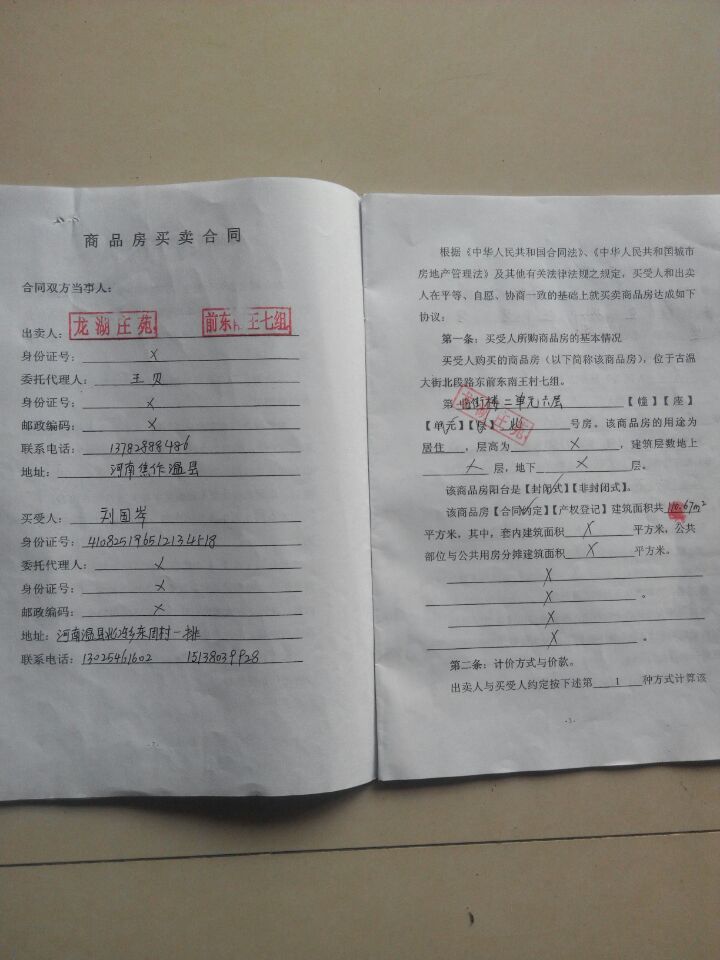 商品房买卖合同
合同双方当事人：
出卖人：龙湖庄苑 前东 王七组
身份证号： ×
委托代理人： 王贝
身份证号： ×
邮政编码： ×
联系电话： 13782888486
地址： 河南焦作温县
买受人： 刘国岑
身份证号：410825196512134518
委托代理人： ×
身份证号： ×
邮政编码： ×
地址：河南温县北冷乡东周村一排
联系电话：13025461602 15138039928
-2-
根据《中华人民共和国合同法》、《中华人民共和国城市
房地产管理法》及其他有关法律法规之规定，买受人和出卖
人在平等、自愿、协商一致的基础上就买卖商品房达成如下
协议：
第一条：买受人所购商品房的基本情况
买受人购买的商品房（以下简称该商品房），位于古温
大街北段路东前东南王村七组。
第 临街楼二单元六层 【幢】【座】
【单元】【层】 号房。该商品房的用途为
居住，层高为 × ，建筑层数地上
× 层，地下 × 层。
该商品房阳台是【封闭式】【非封闭式】。
该商品房【合同约定】【产权登记】建筑面积共 .67m²
平方米，其中，套内建筑面积 × 平方米，公共
部位与公共用房分摊建筑面积 × 平方米。
×
× 。
×
× 。
第二条：计价方式与价款。
出卖人与买受人约定按下述第 1 种方式计算该
-3-